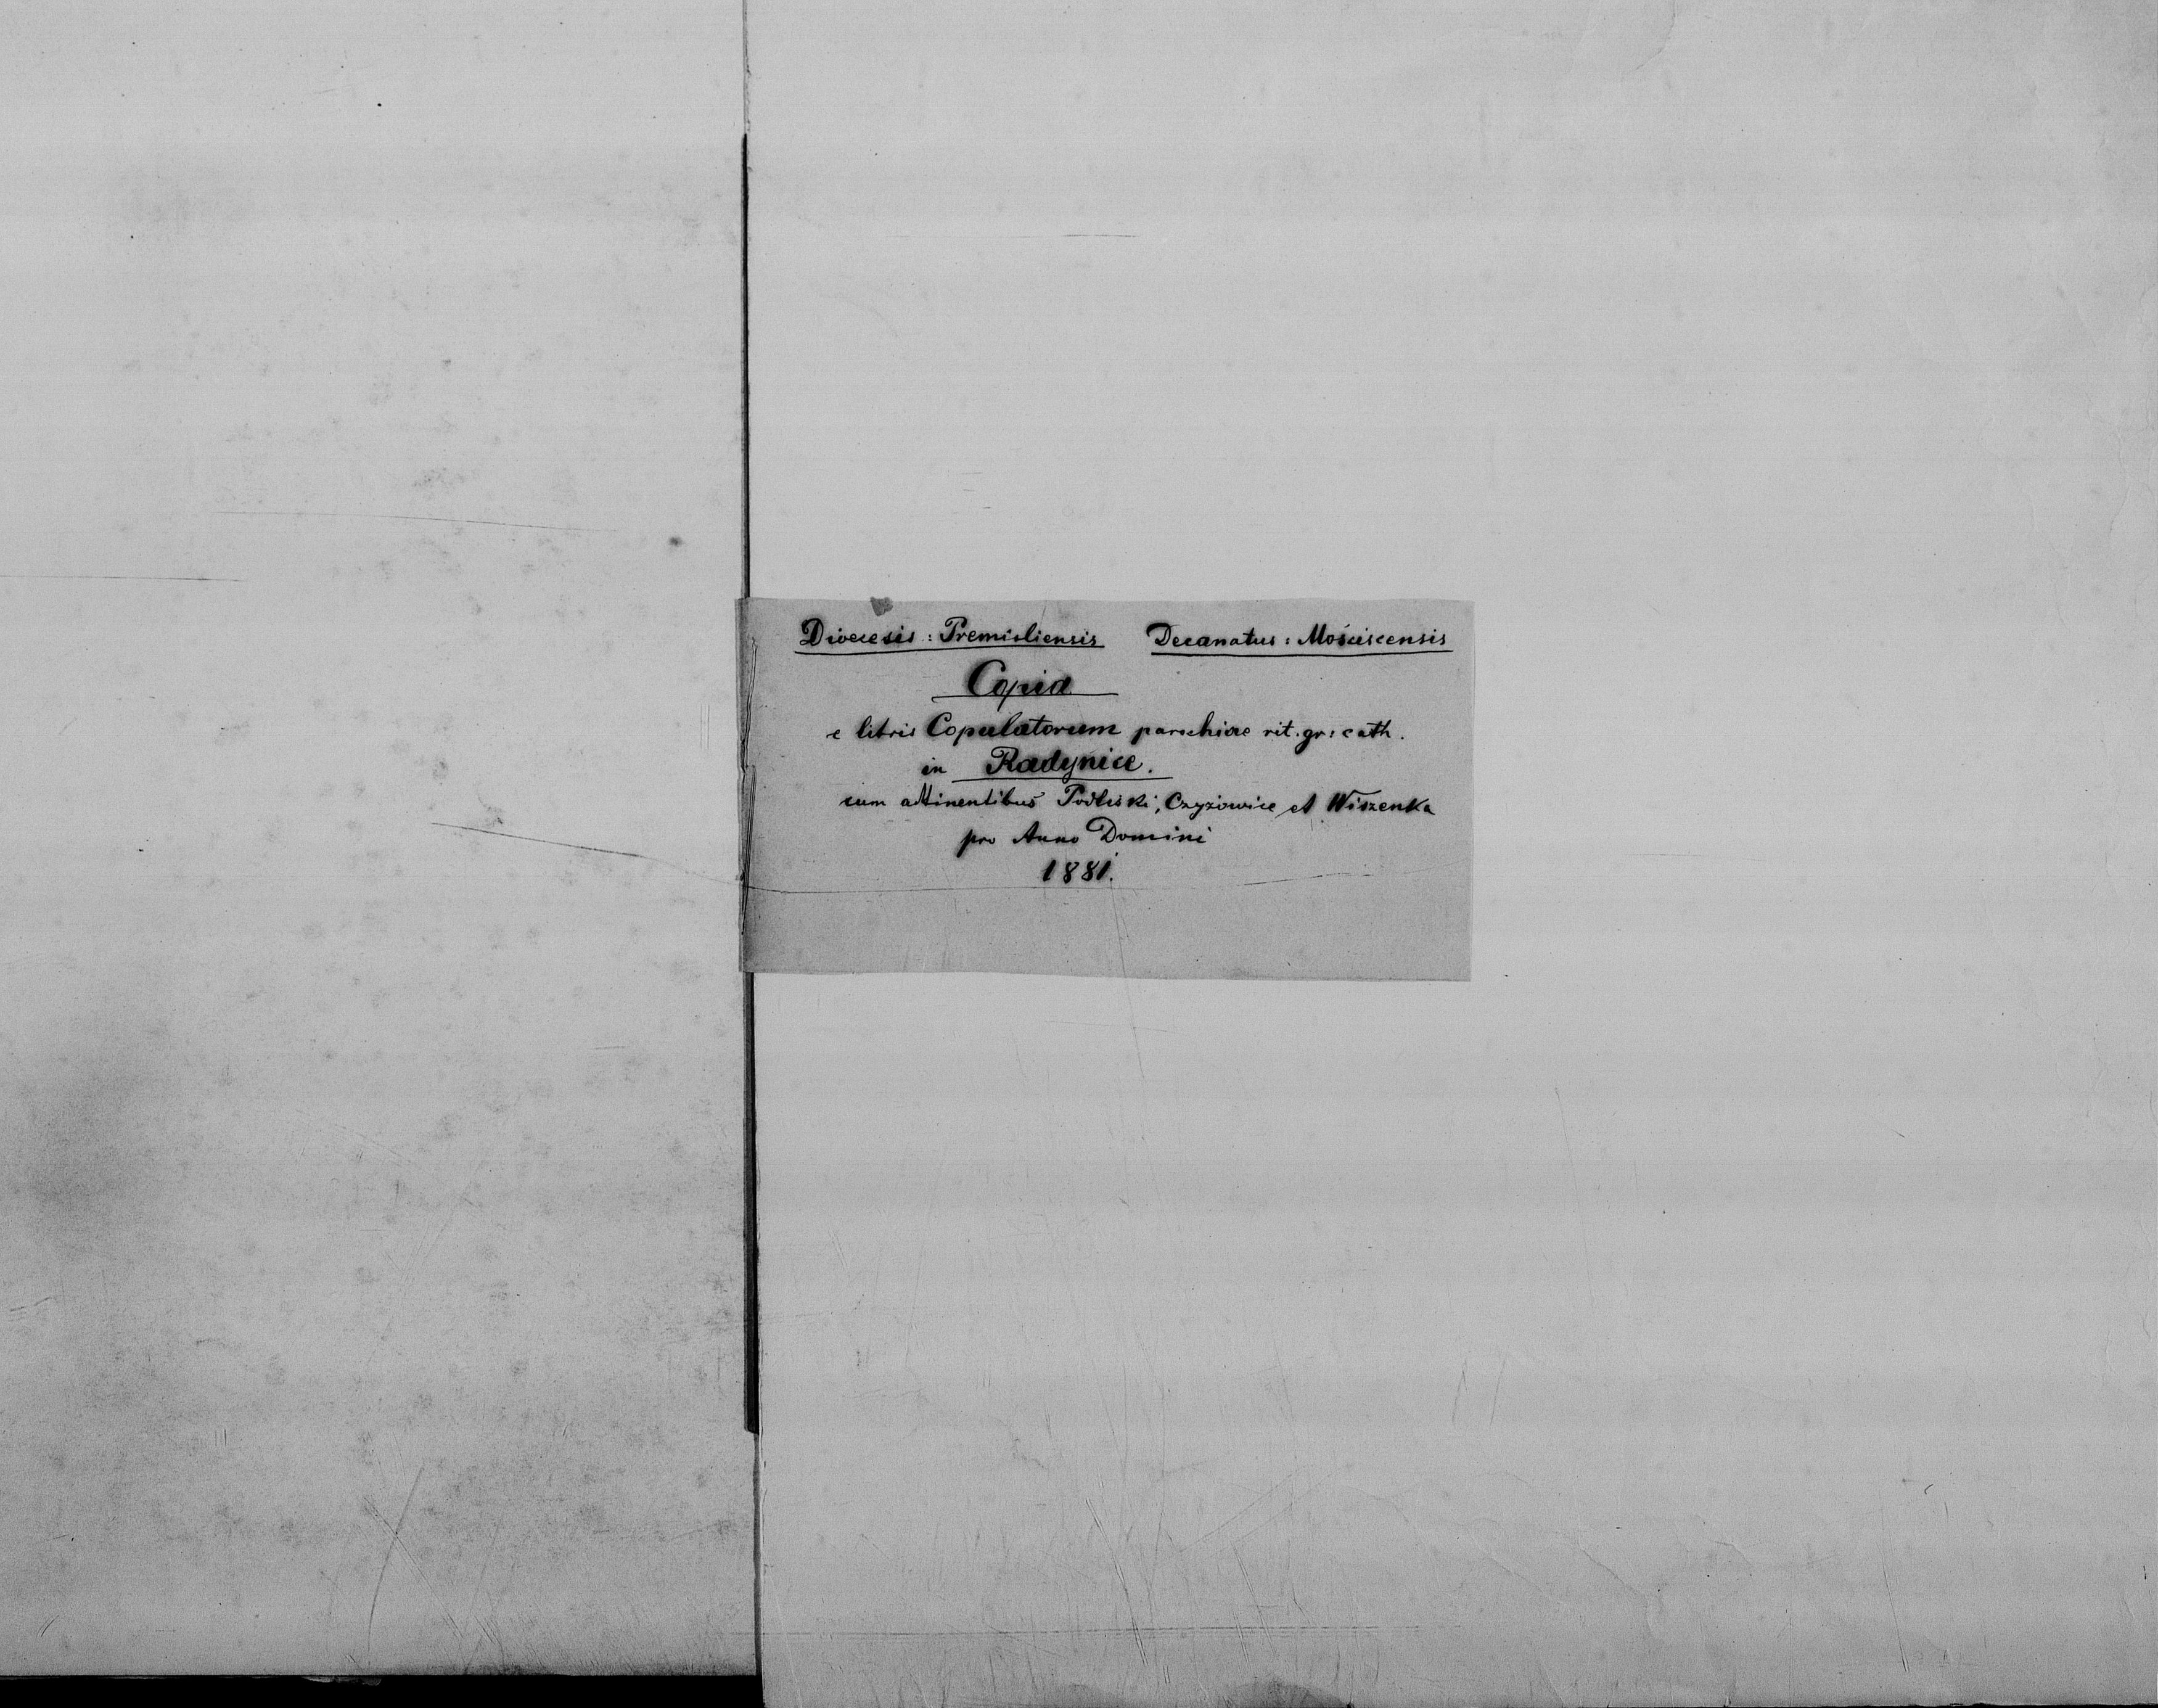 Diœcesis : Premisliensis Decanatus : Mościscensis
Copia
e libris Copulatorum parochiae rit. gr: cath.
in Radynice.
cum attinentibus Podliski, Czyżowice et Wiszenka
pro Anno Domini
1881.